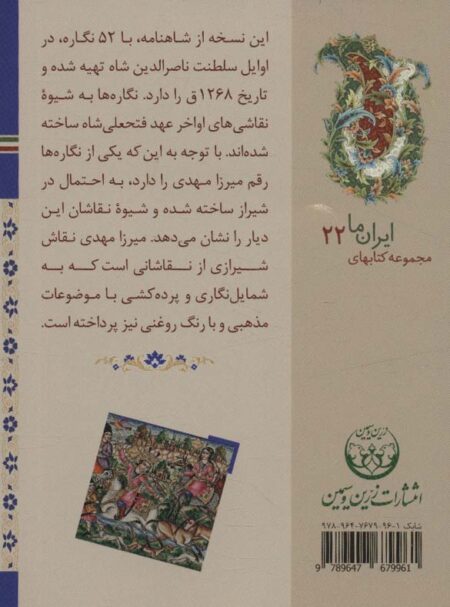 این نسخه از شاهنامه، با ۵۲ نگاره، در
اوایل سلطنت ناصرالدین شاه تهیه شده و
تاریخ ۱۲۶۸ق را دارد. نگاره‌ها به شیوهٔ
نقاشی‌های اواخر عهد فتحعلی‌شاه ساخته
شده‌اند. با توجه به این که یکی از نگاره‌ها
رقم میرزا مهدی را دارد، به احتمال در
شیراز ساخته شده و شیوهٔ نقاشان این
دیار را نشان می‌دهد. میرزا مهدی نقاش
شیرازی از نقاشانی است که به
شمایل‌نگاری و پرده‌کشی با موضوعات
مذهبی و با رنگ روغنی نیز پرداخته است.
ایران ما ۲۲
مجموعه کتابهای
زرین و سیمین
انتشارات زرین و سیمین
شابک ۱-۹۶-۷۶۷۹-۹۶۴-۹۷۸
9 789647 679961